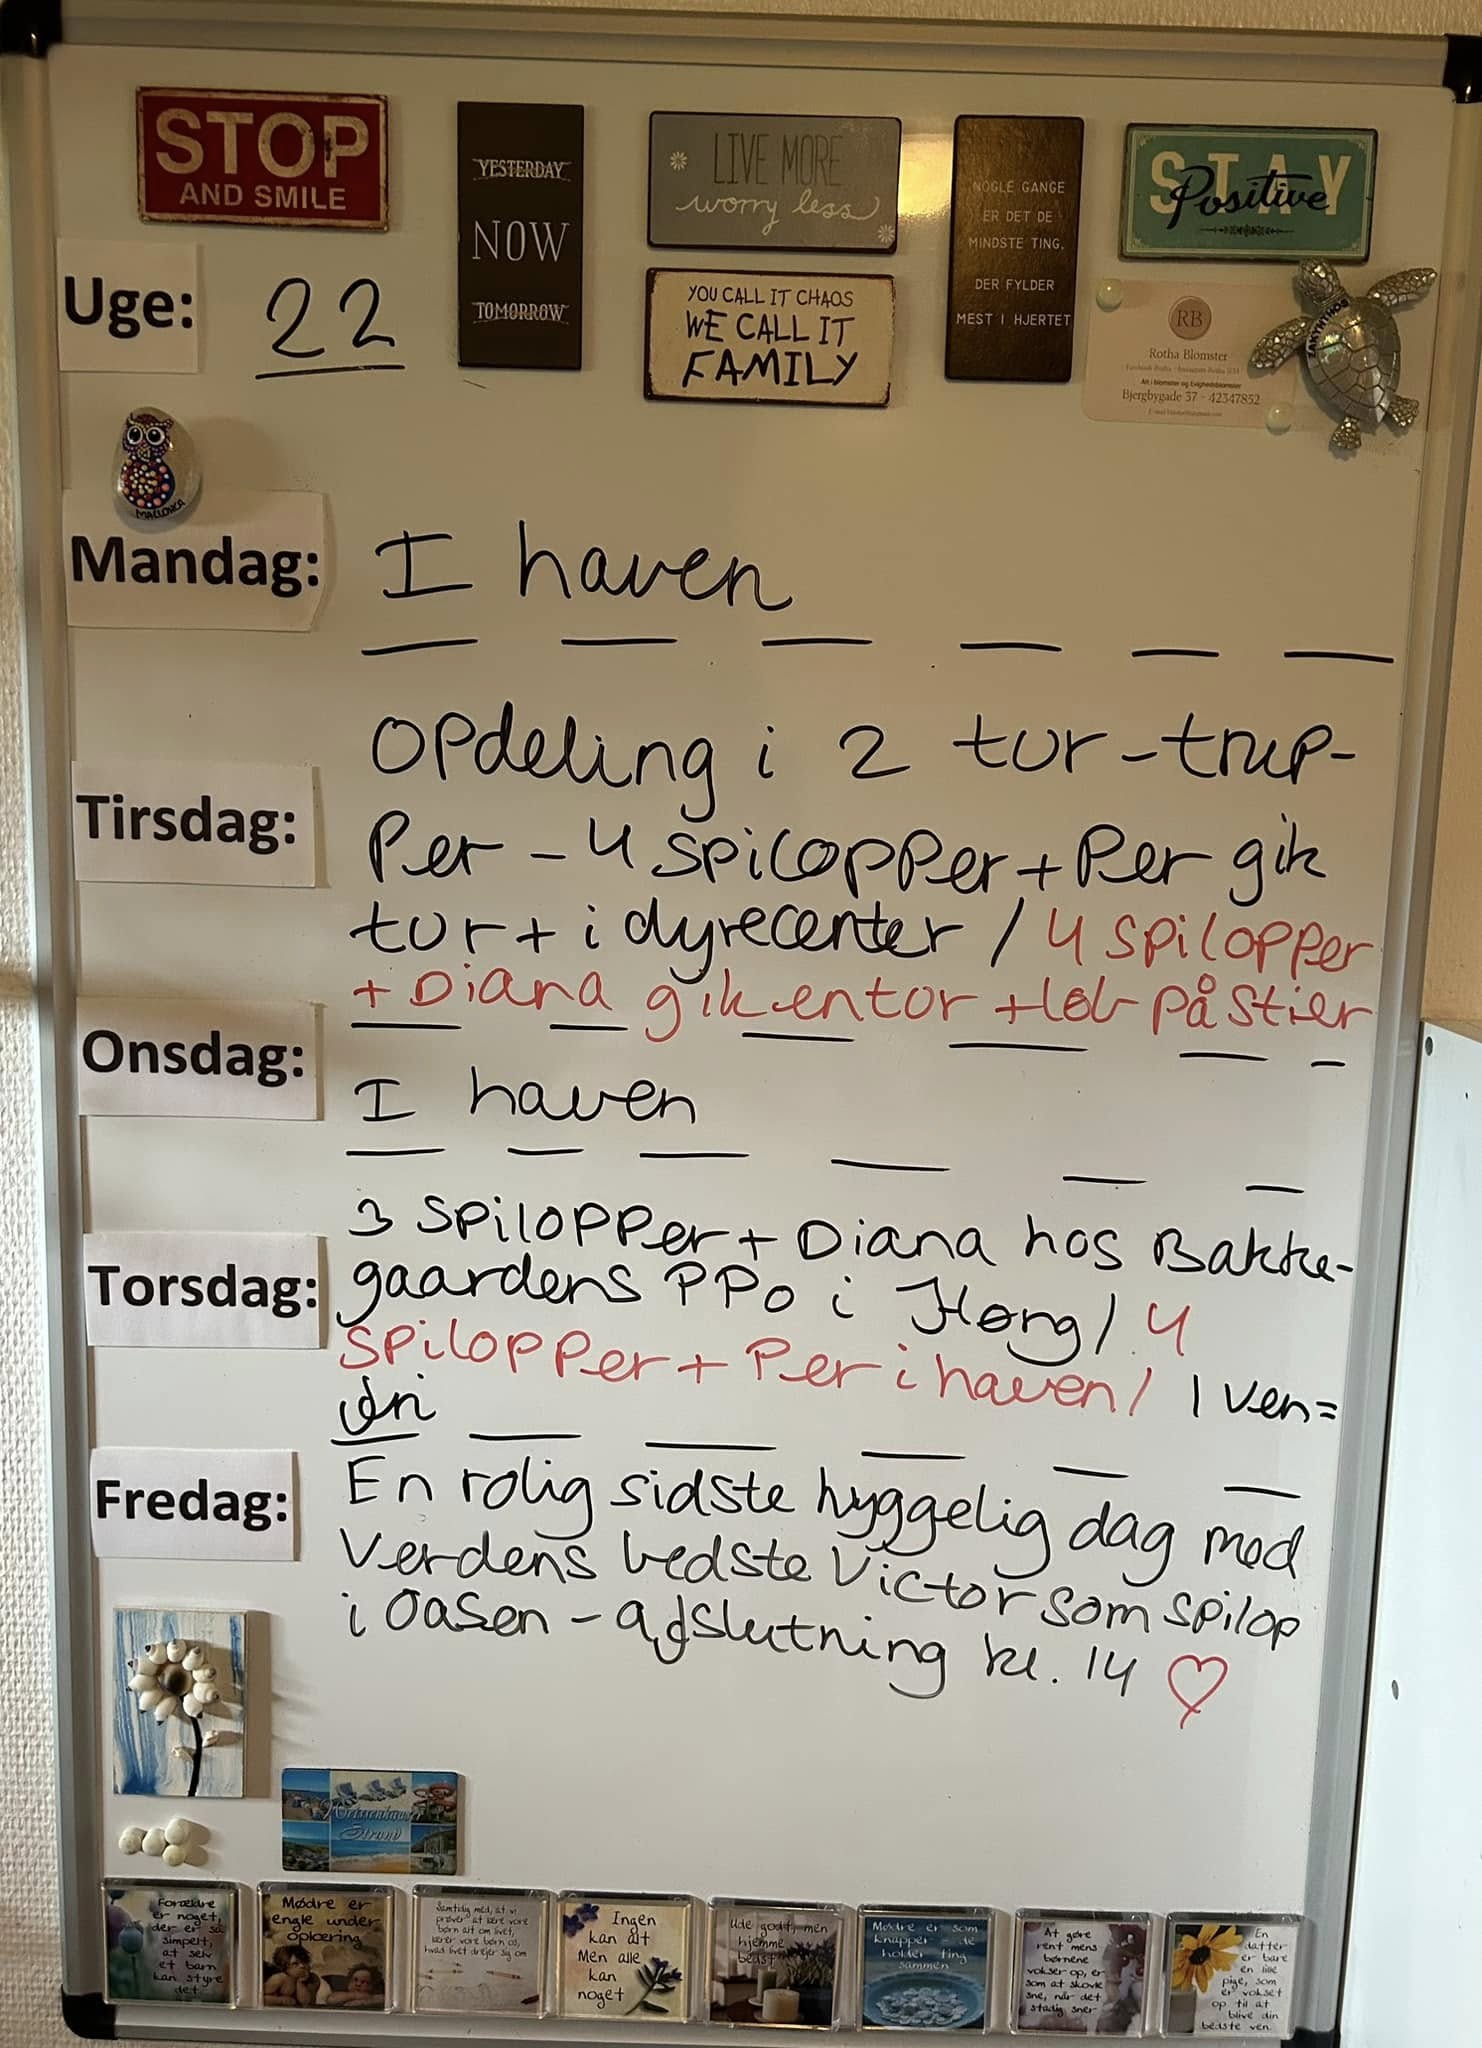 STOP
AND SMILE
YESTERDAY
NOW
TOMORROW
LIVE MORE
worry less
YOU CALL IT CHAOS
WE CALL IT
FAMILY
NOGLE GANGE
ER DET DE
MINDSTE TING,
DER FYLDER
MEST I HJERTET
STAY
Positive
RB
Rotha Blomster
Alt i blomster og Evighedsblomster
Bjergbygade 37 - 42347852
ZAKYNTHOS
Uge: 22
MALLORCA
Mandag: I haven
Tirsdag:
Opdeling i 2 tur-trup-
per - 4 spilopper + Per gik
tur + i dyrecenter / 4 spilopper
+ Diana gik en tur + løb på stier
Onsdag:
I haven
Torsdag:
3 spilopper + Diana hos Bakke-
gaardens PPO i Høng / 4
spilopper + Per i haven / 1 ven=
Fredag:
En rolig sidste hyggelig dag med
Verdens bedste Victor som spilop
i Oasen - afslutning kl. 14
Weissenhäuser
Strand
Forældre
er noget,
der er så
simpelt,
at selv
et barn
kan styre
det
Mødre er
engle under
oplæring
Samtidig med, at vi
prøver at lære vore
børn alt om livet,
lærer vore børn os,
hvad livet drejer sig om
Ingen
kan alt
Men alle
kan
noget
Ude godt, men
hjemme
bedst
Mødre er som
knapper - de
holder ting
sammen
At gøre
rent mens
børnene
vokser op, er
som at skovle
sne, når det
stadig sner
En
datter
er bare
en lille
pige, som
er vokset
op til at
blive din
bedste ven.